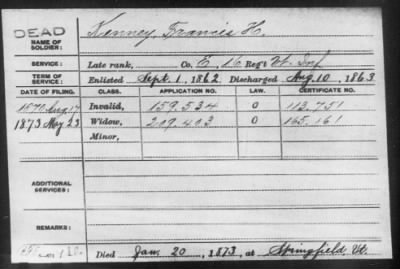 DEAD
NAME OF SOLDIER: Kenney, Francis H.
SERVICE: Late rank, Co. E, 16 Reg't Vt. Inf
TERM OF SERVICE: Enlisted Sept. 1, 1862 Discharged Aug. 10, 1863
DATE OF FILING. CLASS. APPLICATION NO. LAW. CERTIFICATE NO.
1870 Aug 17 Invalid, 159.534 0 113.751
1873 May 23 Widow, 209.403 0 165.161
Minor,
ADDITIONAL SERVICES:
REMARKS:
Died Jan. 20, 1873, at Springfield, Vt.